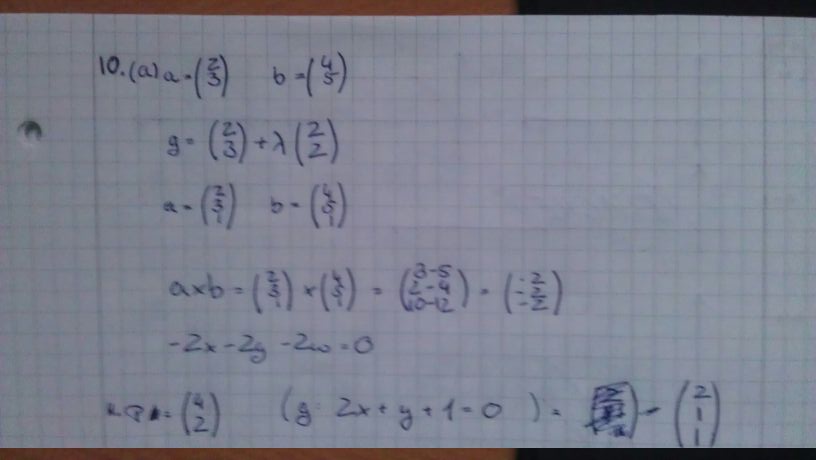 10. (a) a = (2 3) b = (4 5)
g = (2 3) + λ (2 2)
a = (2 3 1) b = (4 5 1)
a × b = (2 3 1) × (4 5 1) = (3-5 2-4 10-12) = (-2 -2 -2)
-2x - 2y - 2w = 0
= (4 2) (g: 2x + y + 1 = 0) = (2 1 1)